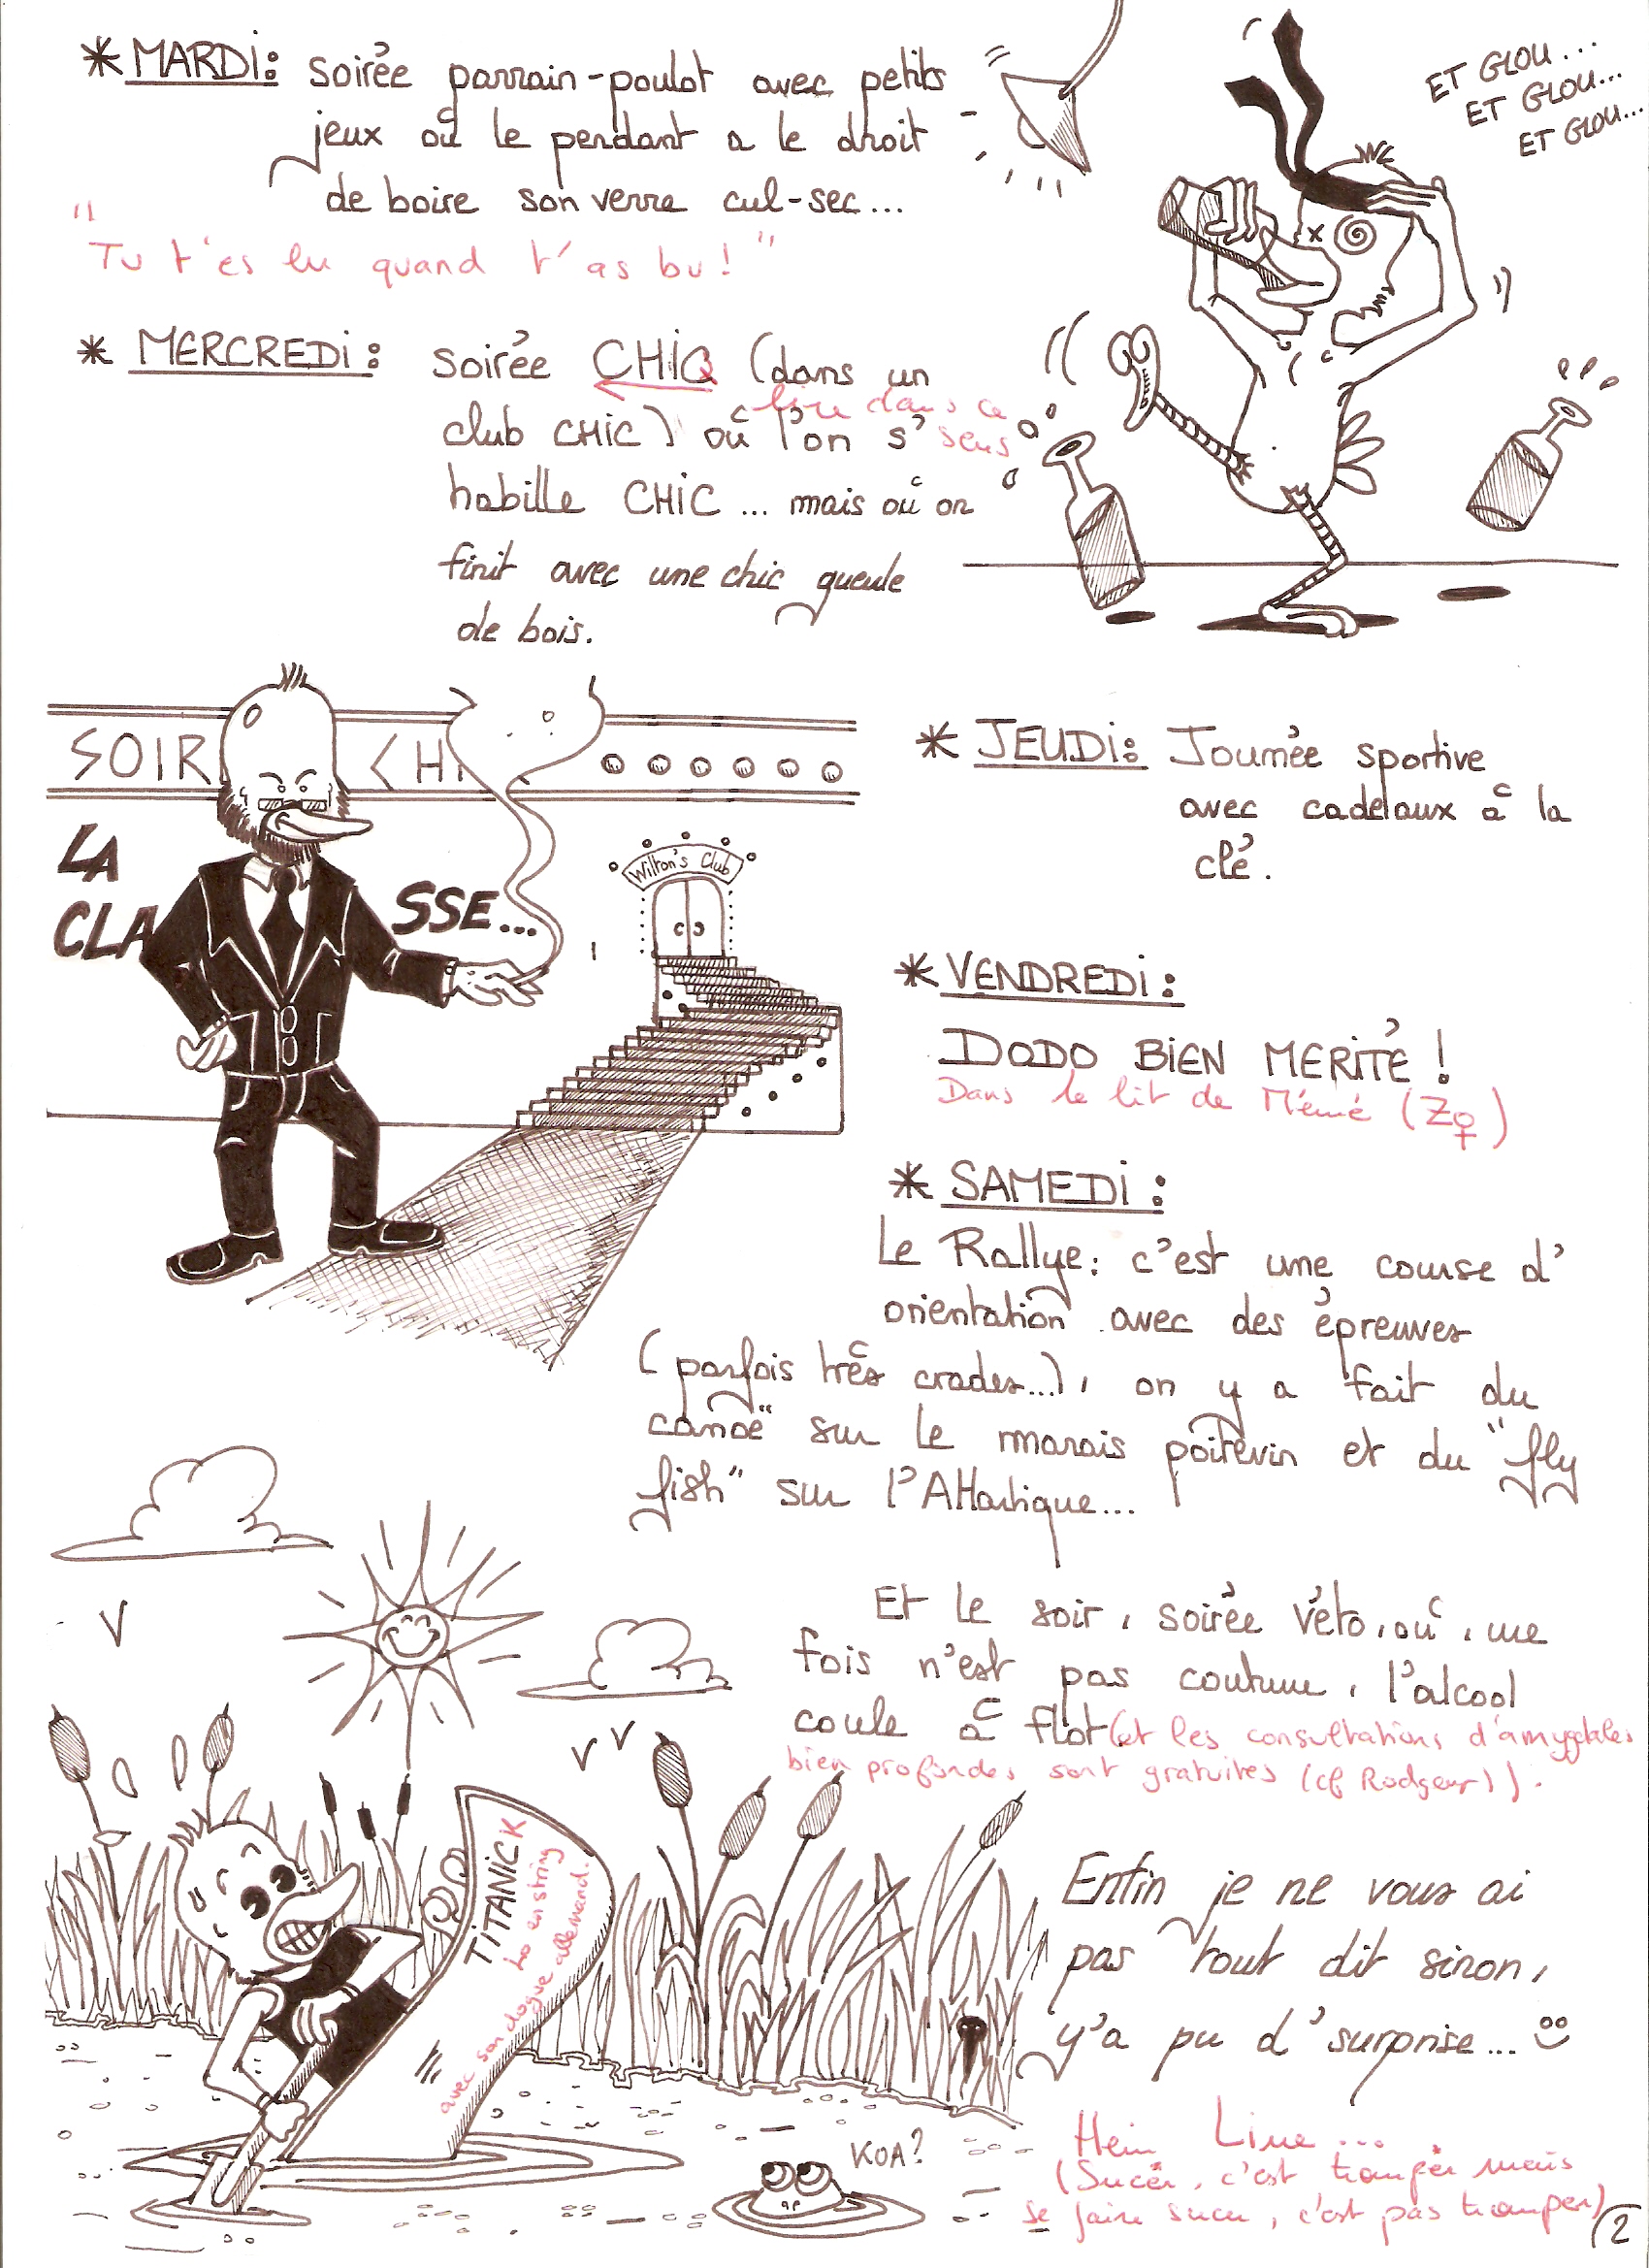 * MARDI: soirée parrain-poulot avec petits
jeux où le perdant a le droit
de boire son verre cul-sec...
"Tu t'es lu quand t'as bu!"
ET GLOU...
ET GLOU...
ET GLOU...
* MERCREDI: soirée CHIQ (dans un
lire dans ce
club CHIC) où l'on s'
sens
habille CHIC ... mais où on
finit avec une chic gueule
de bois.
SOIR CHI
LA
CLA SSE...
Wilton's Club
* JEUDI: Journée sportive
avec cadelaux à la
clé.
* VENDREDI:
DODO BIEN MERITÉ!
Dans le lit de Mémé (Z♀)
* SAMEDI:
Le Rallye: c'est une course d'
orientation avec des épreuves
(parfois très crades...), on y a fait du
canoë sur le marais poitevin et du "fly
fish" sur l'Atlantique...
Et le soir, soirée véto, où, une
fois n'est pas coutume, l'alcool
coule à flot (et les consultations d'amygdales
bien profondes sont gratuites (cf Rodgeur)).
TITANICK
Lo en string
avec son dogue allemand.
Enfin je ne vous ai
pas tout dit sinon,
y'a pu d'surprise... 
KOA?
Hein Line...
(Sucer, c'est tromper mais
se faire sucer, c'est pas tromper)
2